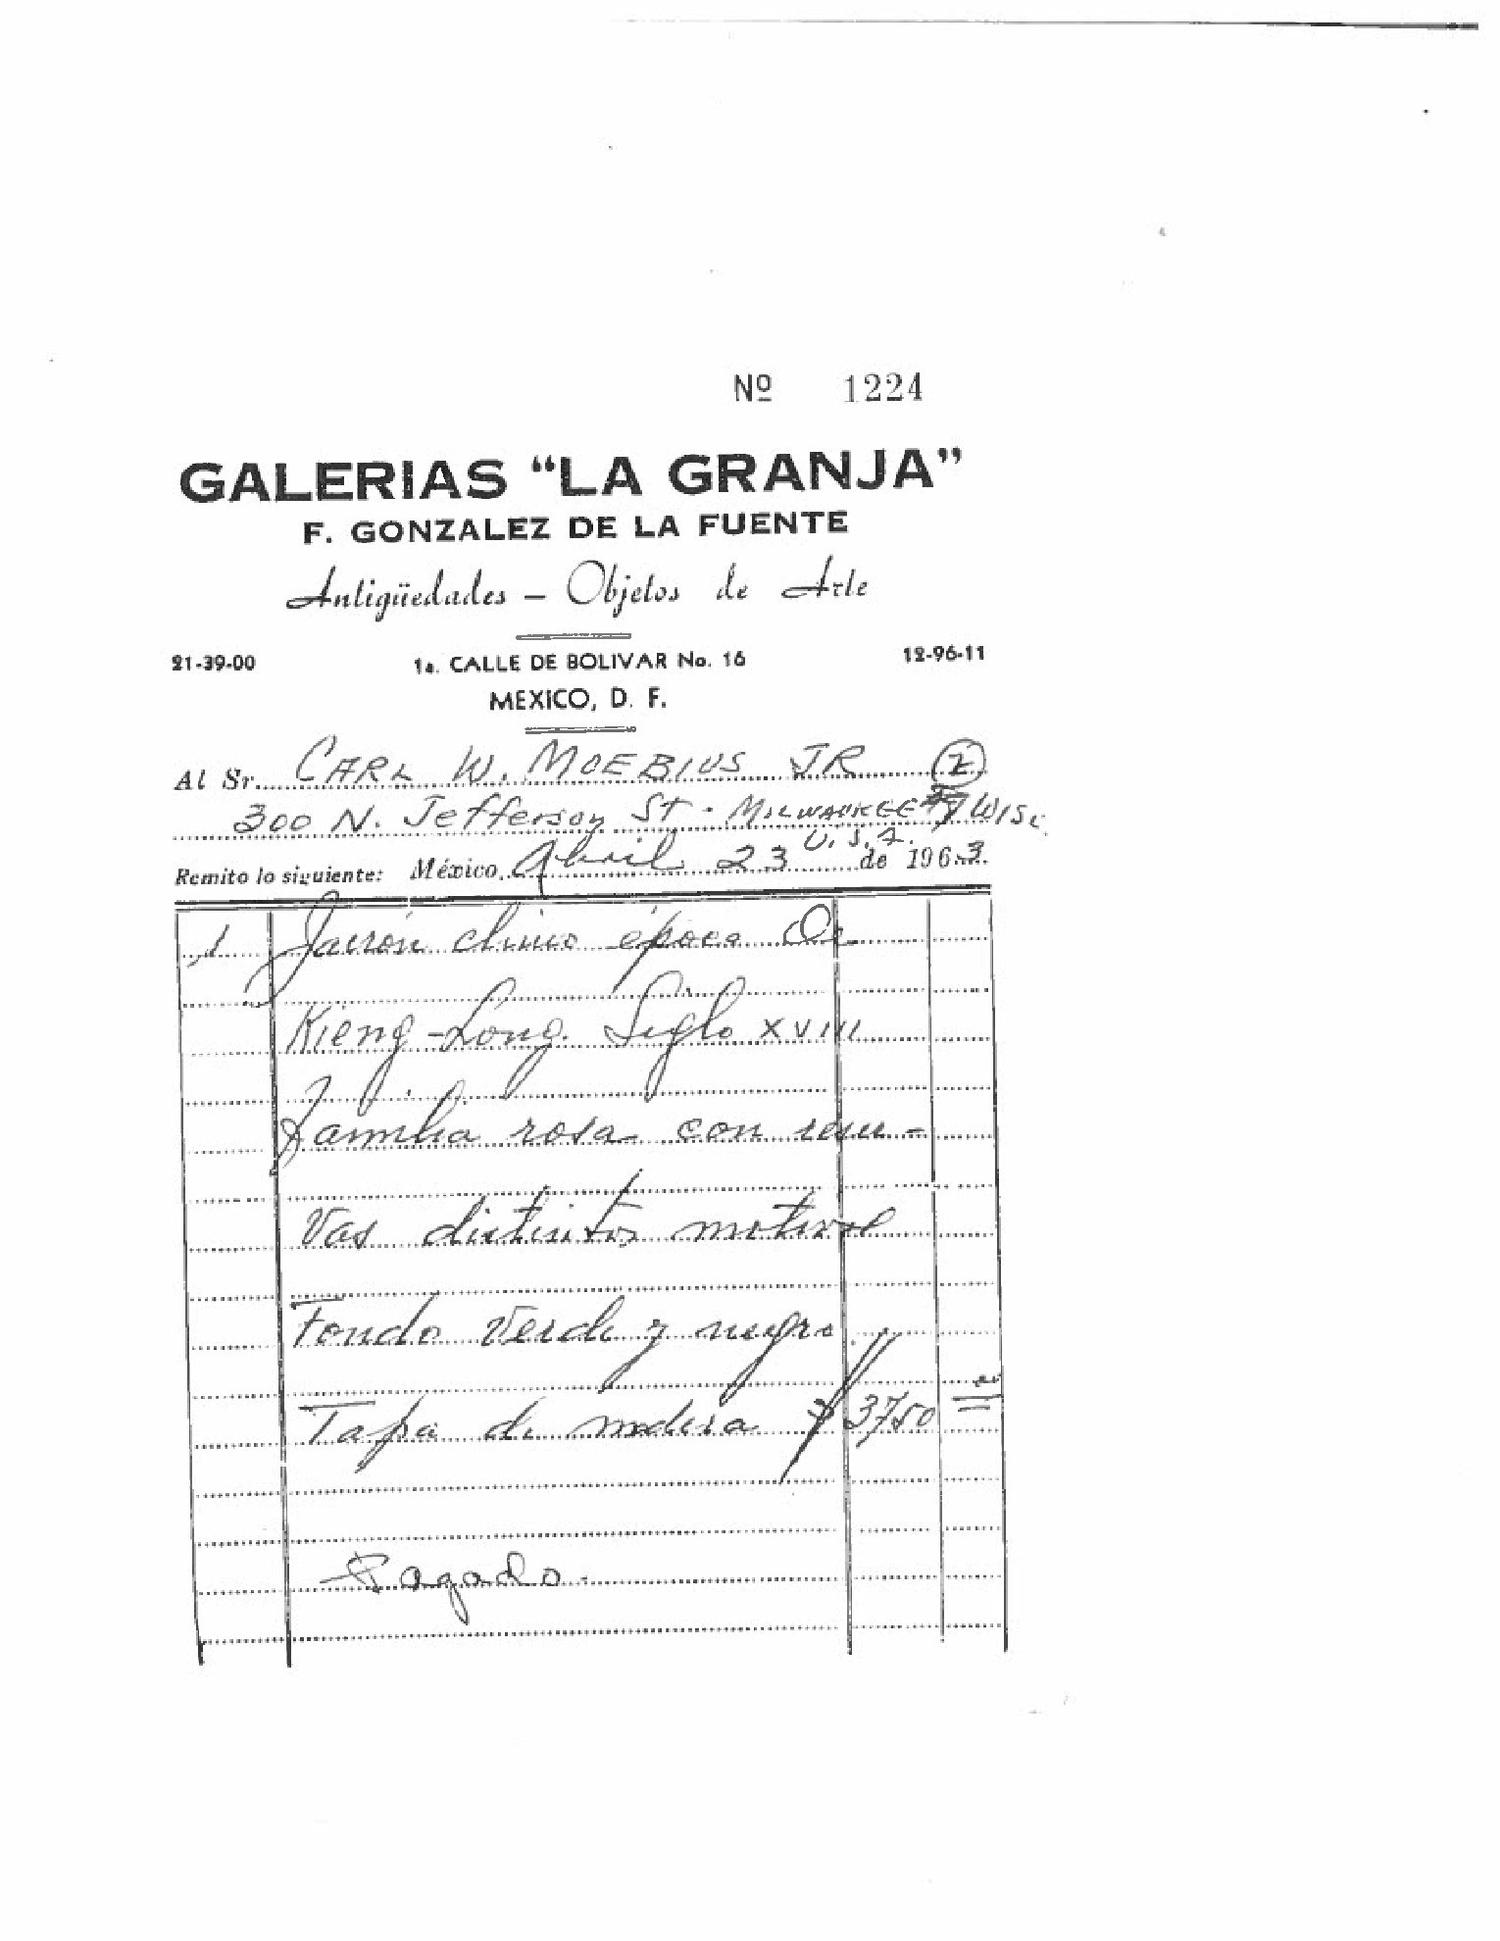 Nº 1224
GALERIAS "LA GRANJA"
F. GONZALEZ DE LA FUENTE
Antigüedades — Objetos de Arte
21-39-00 1a. CALLE DE BOLIVAR No. 16 12-96-11
MEXICO, D. F.
Al Sr. CARL W. MOEBIUS JR 2
300 N. Jefferson St. MILWAUKEE WISC
U.S.A.
Remito lo siguiente: México, Abril 23 de 1963.
1 Jarrón chino época De
Kieng-Long. Siglo XVIII
Familia rosa con reser-
vas distintos motivos
Fondo verde y negro
Tapa de madera $ 3750
Pagado.